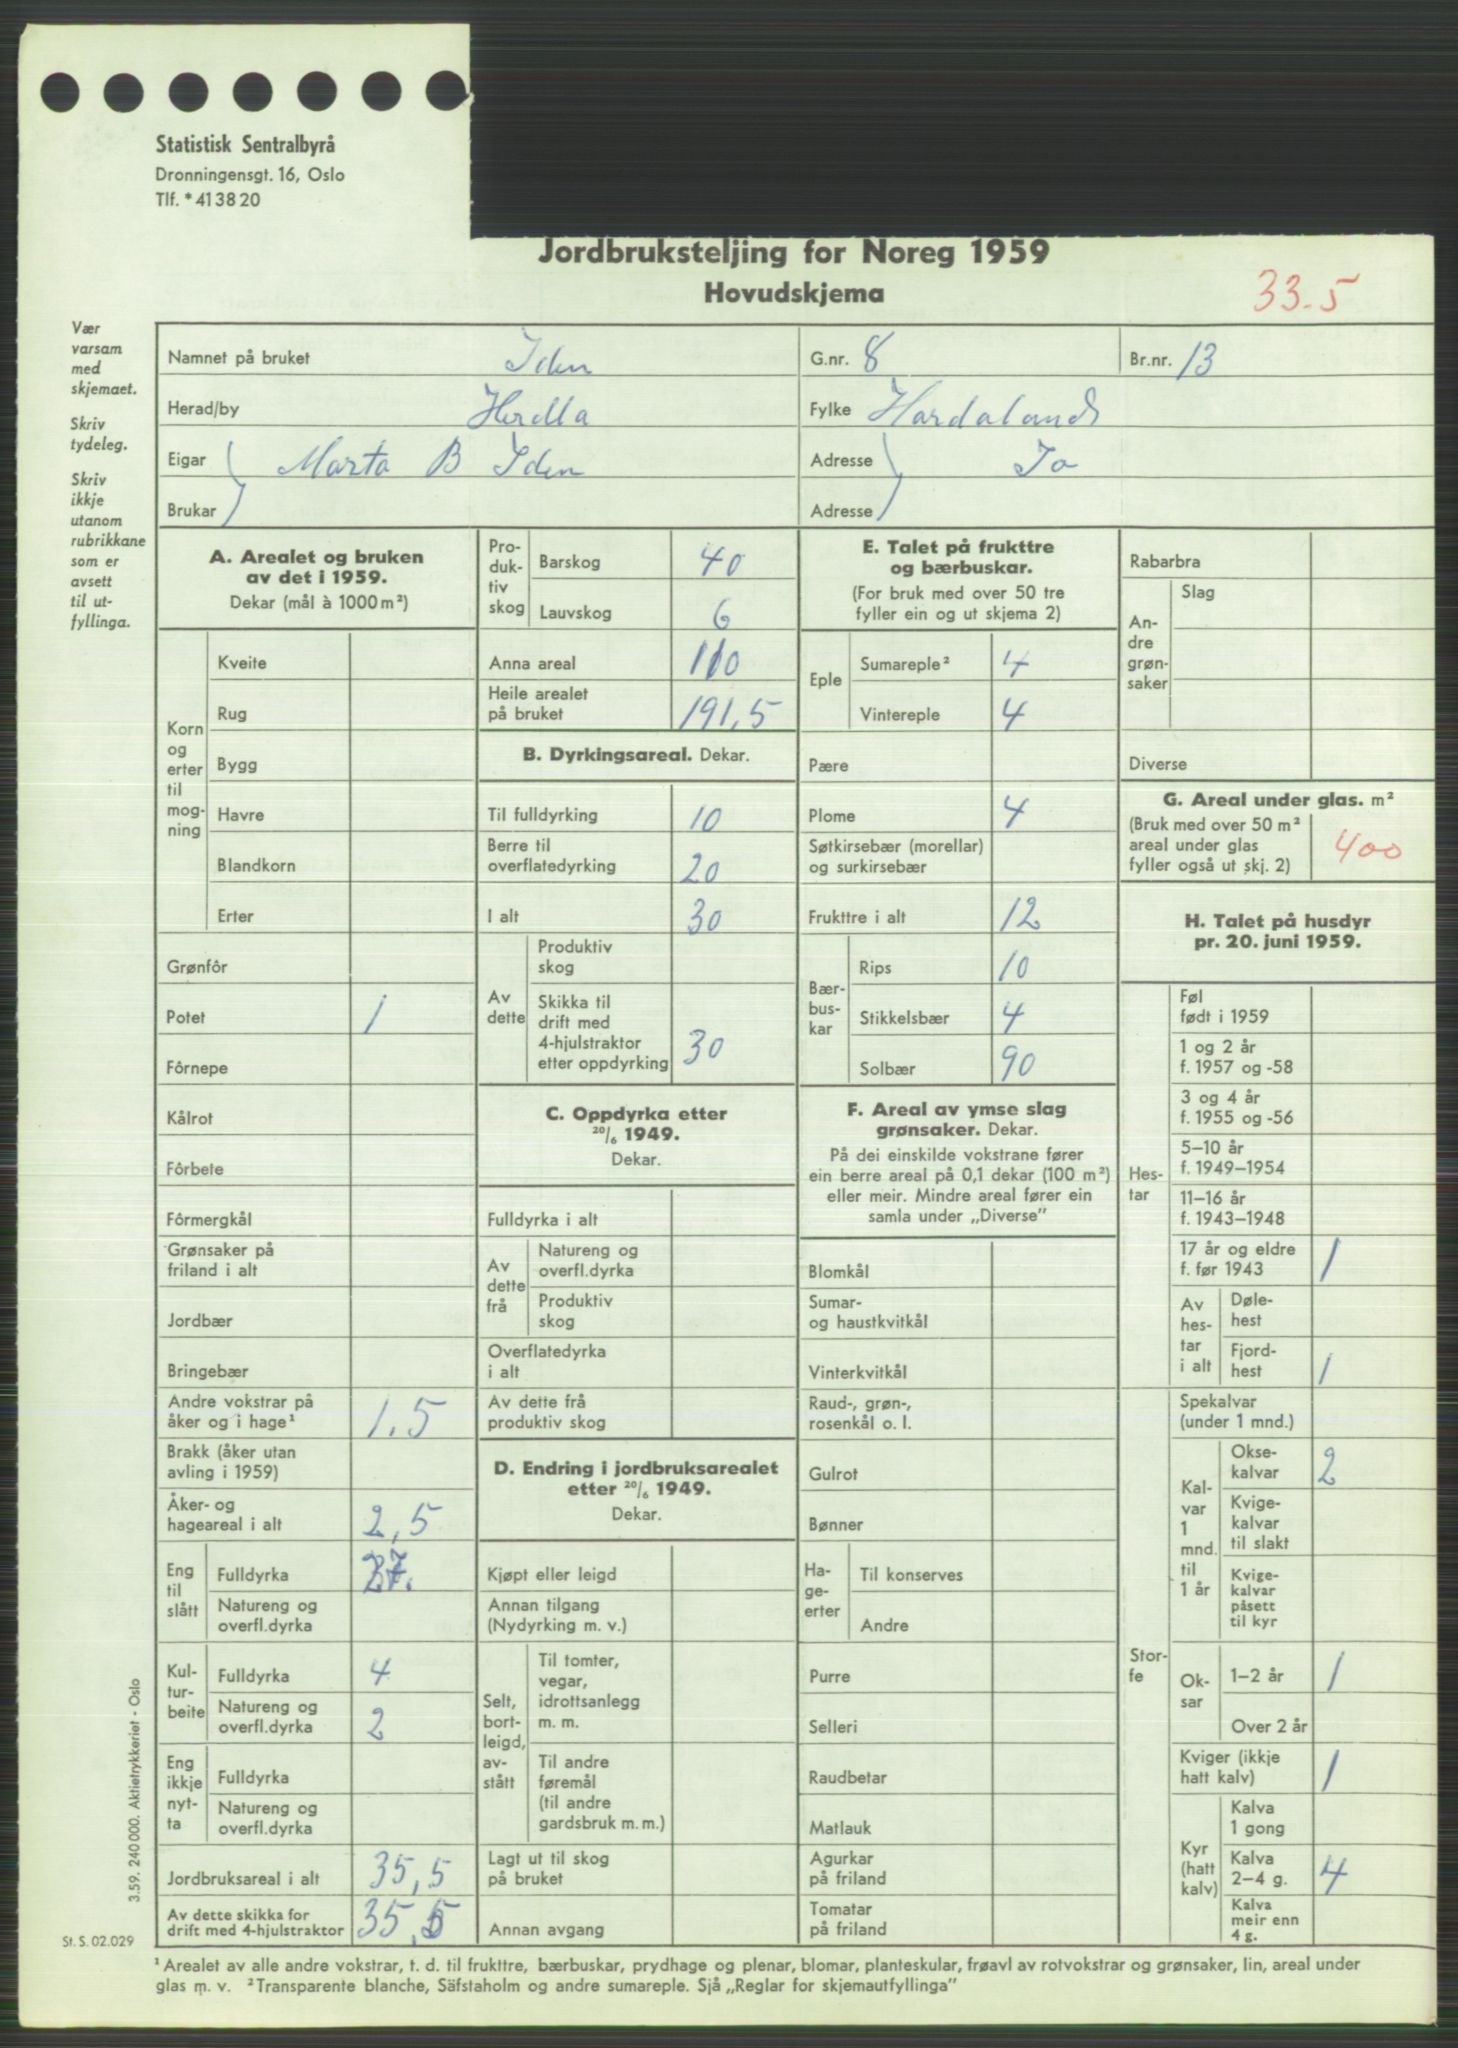 Statistisk Sentralbyrå
Dronningensgt. 16, Oslo
Tlf. * 41 38 20
Jordbruksteljing for Noreg 1959
Hovudskjema
33.5
Vær
varsam
med
skjemaet.
Skriv
tydeleg.
Skriv
ikkje
utanom
rubrikkane
som er
avsett
til ut-
fyllinga.
Namnet på bruket Iden G.nr. 8 Br.nr. 13
Herad/by Herdla Fylke Hordaland
Eigar Marta B Iden Adresse
Brukar Adresse
A. Arealet og bruken
av det i 1959.
Dekar (mål à 1000 m²)
Korn
og
erter
til
mog-
ning
Kveite
Rug
Bygg
Havre
Blandkorn
Erter
Grønfôr
Potet 1
Fôrnepe
Kålrot
Fôrbete
Fôrmergkål
Grønsaker på
friland i alt
Jordbær
Bringebær
Andre vokstrar på
åker og i hage¹ 1.5
Brakk (åker utan
avling i 1959)
Åker- og
hageareal i alt 2,5
Eng
til
slått
Fulldyrka 27.
Natureng og
overfl.dyrka
Kul-
tur-
beite
Fulldyrka 4
Natureng og
overfl.dyrka 2
Eng
ikkje
nyt-
ta
Fulldyrka
Natureng og
overfl.dyrka
Jordbruksareal i alt 35,5
Av dette skikka for
drift med 4-hjulstraktor 35,5
Pro-
duk-
tiv
skog
Barskog 40
Lauvskog 6
Anna areal 110
Heile arealet
på bruket 191,5
B. Dyrkingsareal. Dekar.
Til fulldyrking 10
Berre til
overflatedyrking 20
I alt 30
Av
dette
Produktiv
skog
Skikka til
drift med
4-hjulstraktor
etter oppdyrking 30
C. Oppdyrka etter
20/6 1949.
Dekar.
Fulldyrka i alt
Av
dette
frå
Natureng og
overfl.dyrka
Produktiv
skog
Overflatedyrka
i alt
Av dette frå
produktiv skog
D. Endring i jordbruksarealet
etter 20/6 1949.
Dekar.
Kjøpt eller leigd
Annan tilgang
(Nydyrking m. v.)
Selt,
bort-
leigd,
av-
stått
Til tomter,
vegar,
idrottsanlegg
m. m.
Til andre
føremål
(til andre
gardsbruk m. m.)
Lagt ut til skog
på bruket
Annan avgang
E. Talet på frukttre
og bærbuskar.
(For bruk med over 50 tre
fyller ein og ut skjema 2)
Eple
Sumareple² 4
Vintereple 4
Pære
Plome 4
Søtkirsebær (morellar)
og surkirsebær
Frukttre i alt 12
Bær-
bus-
kar
Rips 10
Stikkelsbær 4
Solbær 90
F. Areal av ymse slag
grønsaker. Dekar.
På dei einskilde vokstrane fører
ein berre areal på 0,1 dekar (100 m²)
eller meir. Mindre areal fører ein
samla under „Diverse”
Blomkål
Sumar-
og haustkvitkål
Vinterkvitkål
Raud-, grøn-,
rosenkål o. l.
Gulrot
Bønner
Ha-
ge-
erter
Til konserves
Andre
Purre
Selleri
Raudbetar
Matlauk
Agurkar
på friland
Tomatar
på friland
Rabarbra
An-
dre
grøn-
saker
Slag
Diverse
G. Areal under glas. m²
(Bruk med over 50 m²
areal under glas
fyller også ut skj. 2) 400
H. Talet på husdyr
pr. 20. juni 1959.
Hes-
tar
Føl
født i 1959
1 og 2 år
f. 1957 og -58
3 og 4 år
f. 1955 og -56
5–10 år
f. 1949–1954
11–16 år
f. 1943–1948
17 år og eldre
f. før 1943 1
Av
hes-
tar
i alt
Døle-
hest
Fjord-
hest 1
Stor-
fe
Spekalvar
(under 1 mnd.)
Kal-
var
1
mnd.
til
1 år
Okse-
kalvar 2
Kvige-
kalvar
til slakt
Kvige-
kalvar
påsett
til kyr
Ok-
sar
1–2 år 1
Over 2 år
Kviger (ikkje
hatt kalv) 1
Kyr
(hatt
kalv)
Kalva
1 gong
Kalva
2–4 g. 4
Kalva
meir enn
4 g.
3.59. 240 000. Aktietrykkeriet - Oslo
St. S. 02.029
¹ Arealet av alle andre vokstrar, t. d. til frukttre, bærbuskar, prydhage og plenar, blomar, planteskular, frøavl av rotvokstrar og grønsaker, lin, areal under
glas m. v. ² Transparente blanche, Säfstaholm og andre sumareple. Sjå „Reglar for skjemautfyllinga”